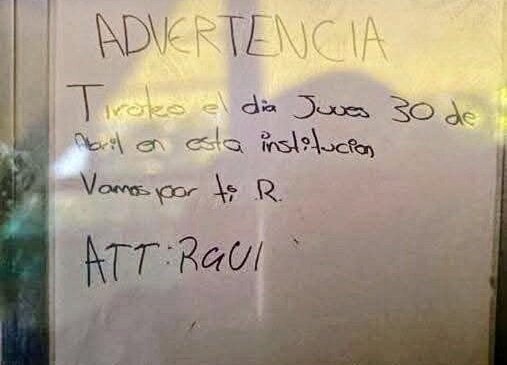 ADVERTENCIA
Tiroteo el dia Jueves 30 de
Abril en esta institucion
Vamos por ti, R.
ATT: RGUI